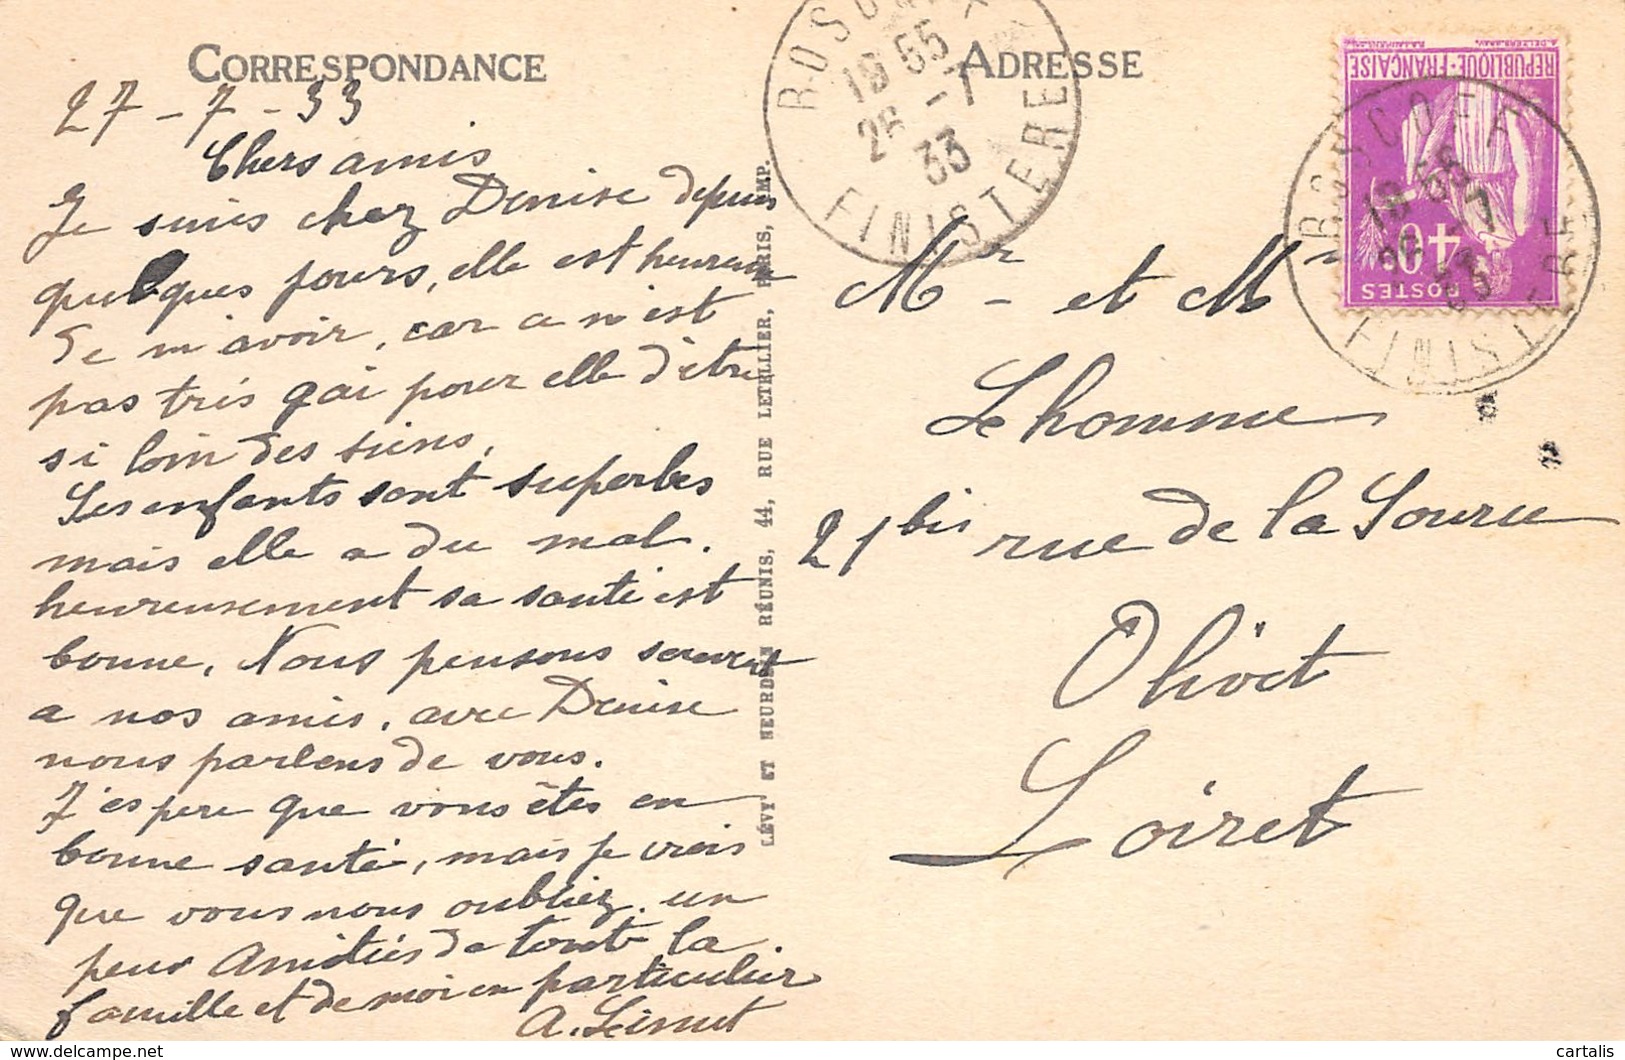 CORRESPONDANCE
27-7-33
Chers amis
Je suis chez Denise depuis
quelques jours, elle est heureuse
de m'avoir, car ca n'est
pas très gai pour elle d'être
si loin des siens,
Ses enfants sont superbes
mais elle a du mal.
heureusement sa santé est
bonne, Nous pensons souvent
a nos amis, avec Denise
nous parlons de vous.
J'espere que vous êtes en
bonne santé, mais je crois
que vous nous oubliez un
peu Amitiés de toute la
famille et de moi en particulier
A.
LÉVY ET NEURDEIN RÉUNIS, 44, RUE LETELLIER, PARIS, IMP.
ADRESSE
ROSCOFF
19 55
26 -7
33
FINISTERE
RÉPUBLIQUE-FRANÇAISE
POSTES
40c
ROSCOFF
19 55
26 -7
33
FINISTERE
Mr et Mme
Lehomme
21 bis rue de la Source
Olivet
Loiret
cartalis